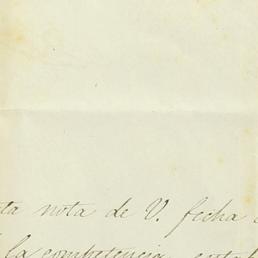 ta nota de V. fecha
la competencia